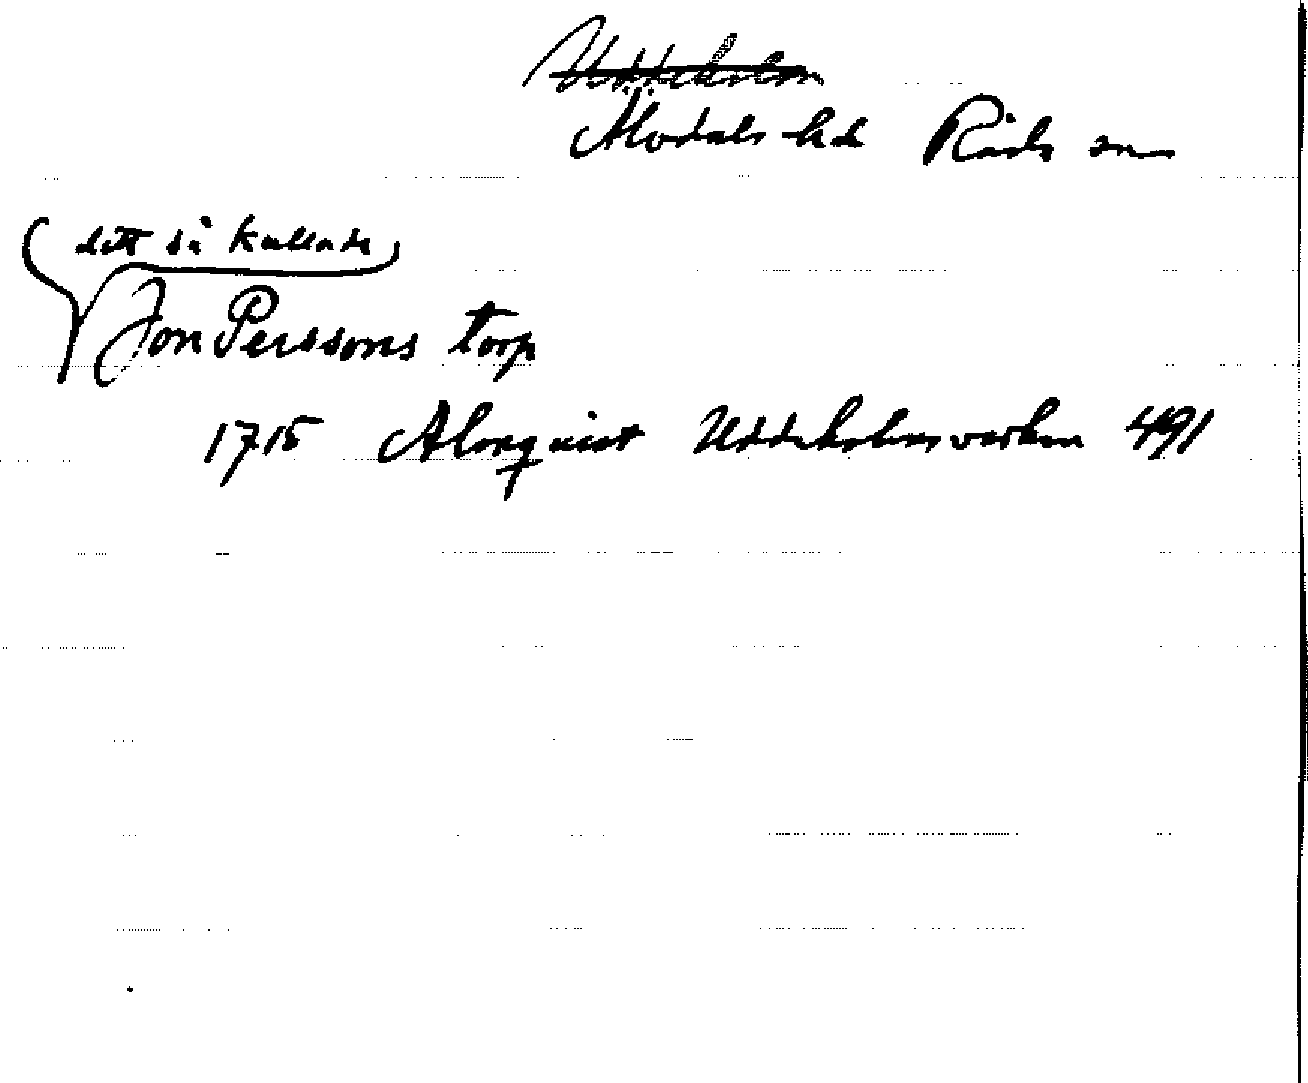 Uddeholm
Älvdals hd Råda sn
dett så kallade
Jon Perssons torp
1715 Almquist Uddeholmsverken 491